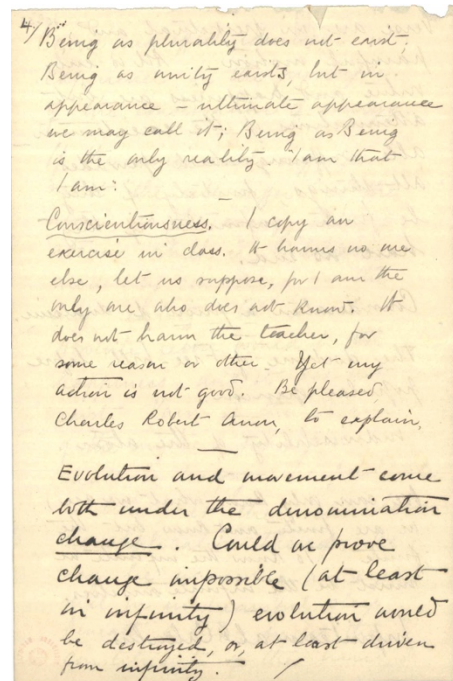 4/
Being as plurality does not exist.
Being as unity exists, but in
appearance – ultimate appearance
we may call it; Being as Being
is the only reality "I am that
I am:
—
Conscientiousness. – I copy an
exercise in class. It harms no one
else, let us suppose, for I am the
only one who does not know. It
does not harm the teacher, for
some reason or other. Yet my
action is not good. Be pleased
Charles Robert Anon, to explain.
—
Evolution and movement come
both under the denomination
change. Could we prove
change impossible (at least
in infinity) evolution would
be destroyed, or, at least driven
from infinity. /